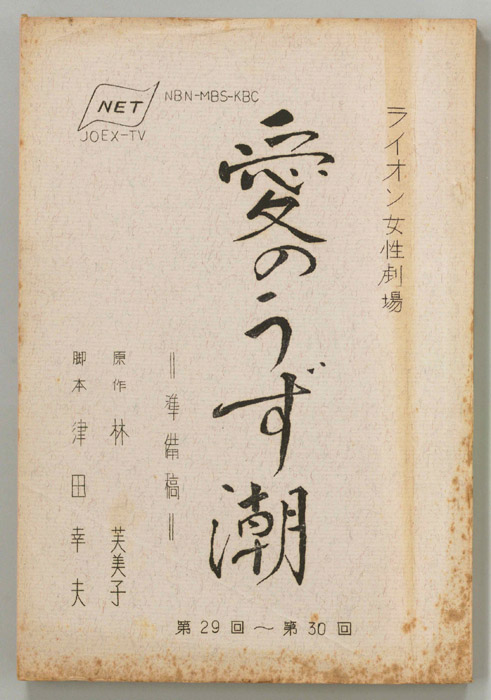 ライオン女性劇場
NET
NBN-MBS-KBC
JOEX-TV
愛のうず潮
＝準備稿＝
原作 林 芙美子
脚本 津田幸夫
第29回～第30回